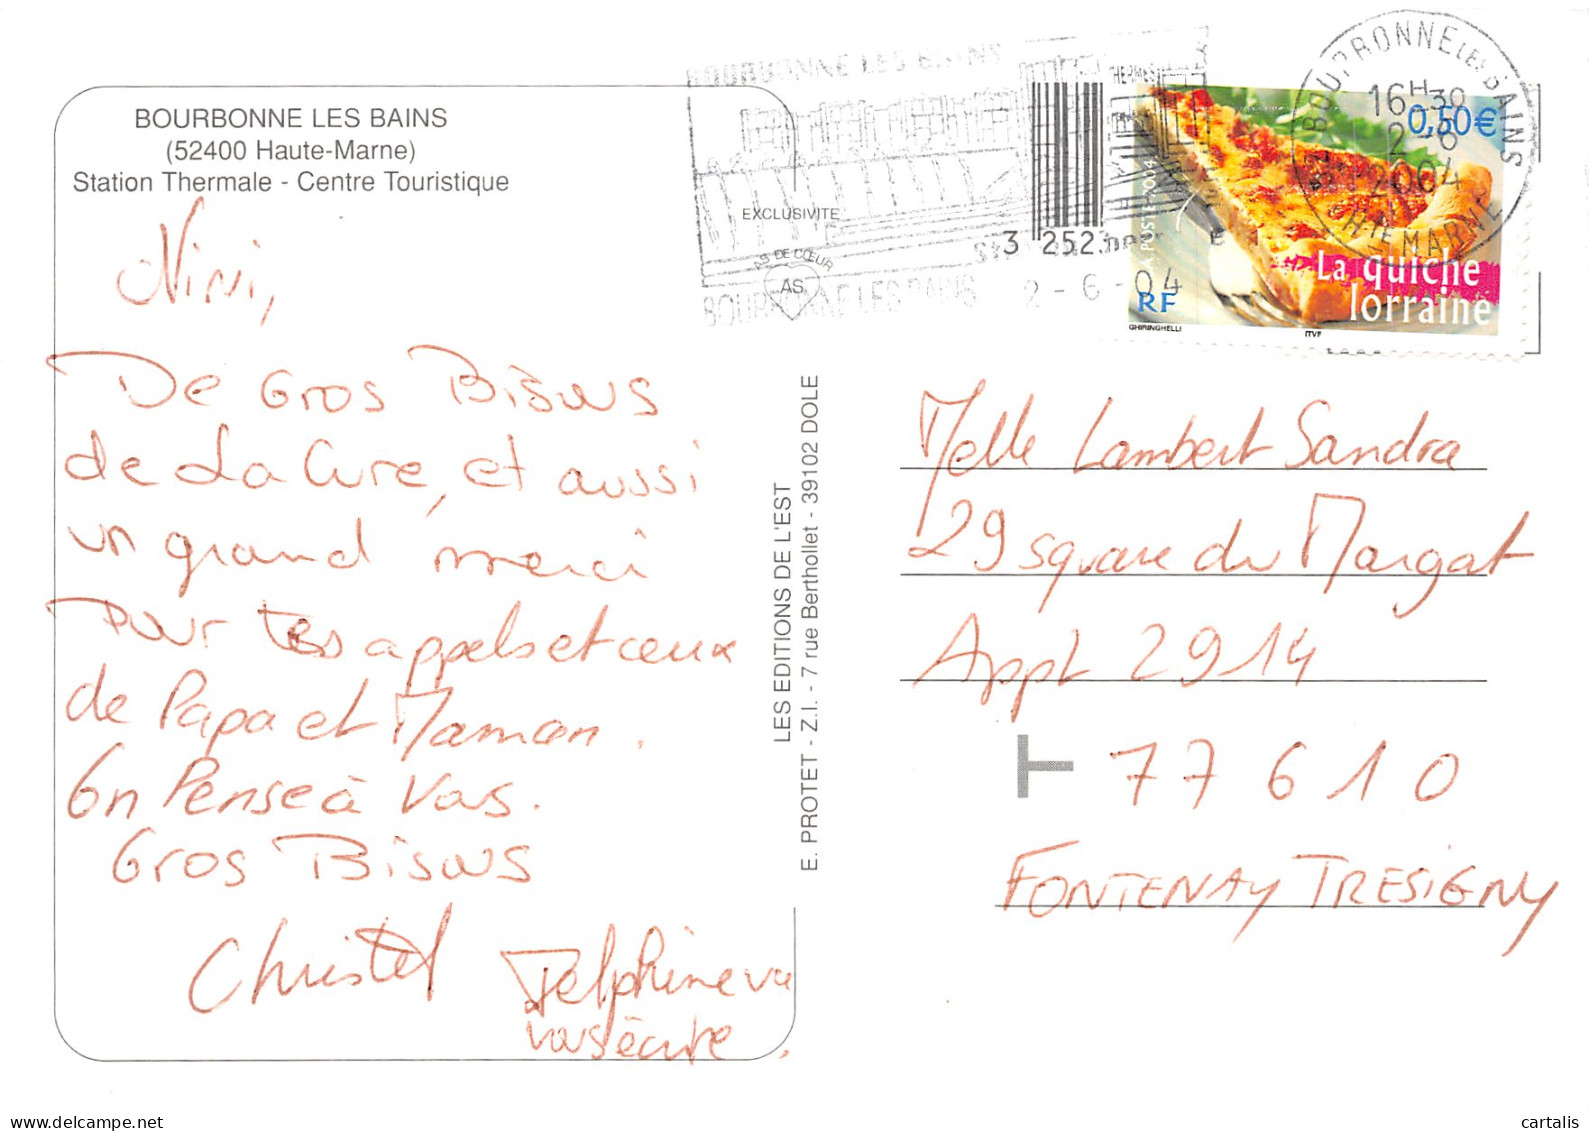 BOURBONNE LES BAINS
(52400 Haute-Marne)
Station Thermale - Centre Touristique
Nini,
De Gros Bisous
de La Cure, et aussi
un grand merci
Pour tes appels et ceux
de Papa et Maman.
On Pense à Vous.
Gros Bisous
Christel
Delphine va
vous écrire.
BOURBONNE LES BAINS
THERMES
EXCLUSIVITE
AS DE CŒUR
AS
BOURBONNE LES BAINS
2-6-04
3 2523
LES EDITIONS DE L'EST
E. PROTET - Z.I. - 7 rue Berthollet - 39102 DOLE
BOURBONNE LES BAINS
16H30
2-6
2004
HTE MARNE
0,50€
LA POSTE 2004
La quiche
lorraine
RF
GHIRINGHELLI
ITVF
Melle Lambert Sandra
29 square du Margat
Appt 2914
T 77610
FONTENAY TRESIGNY
www.delcampe.net
cartalis